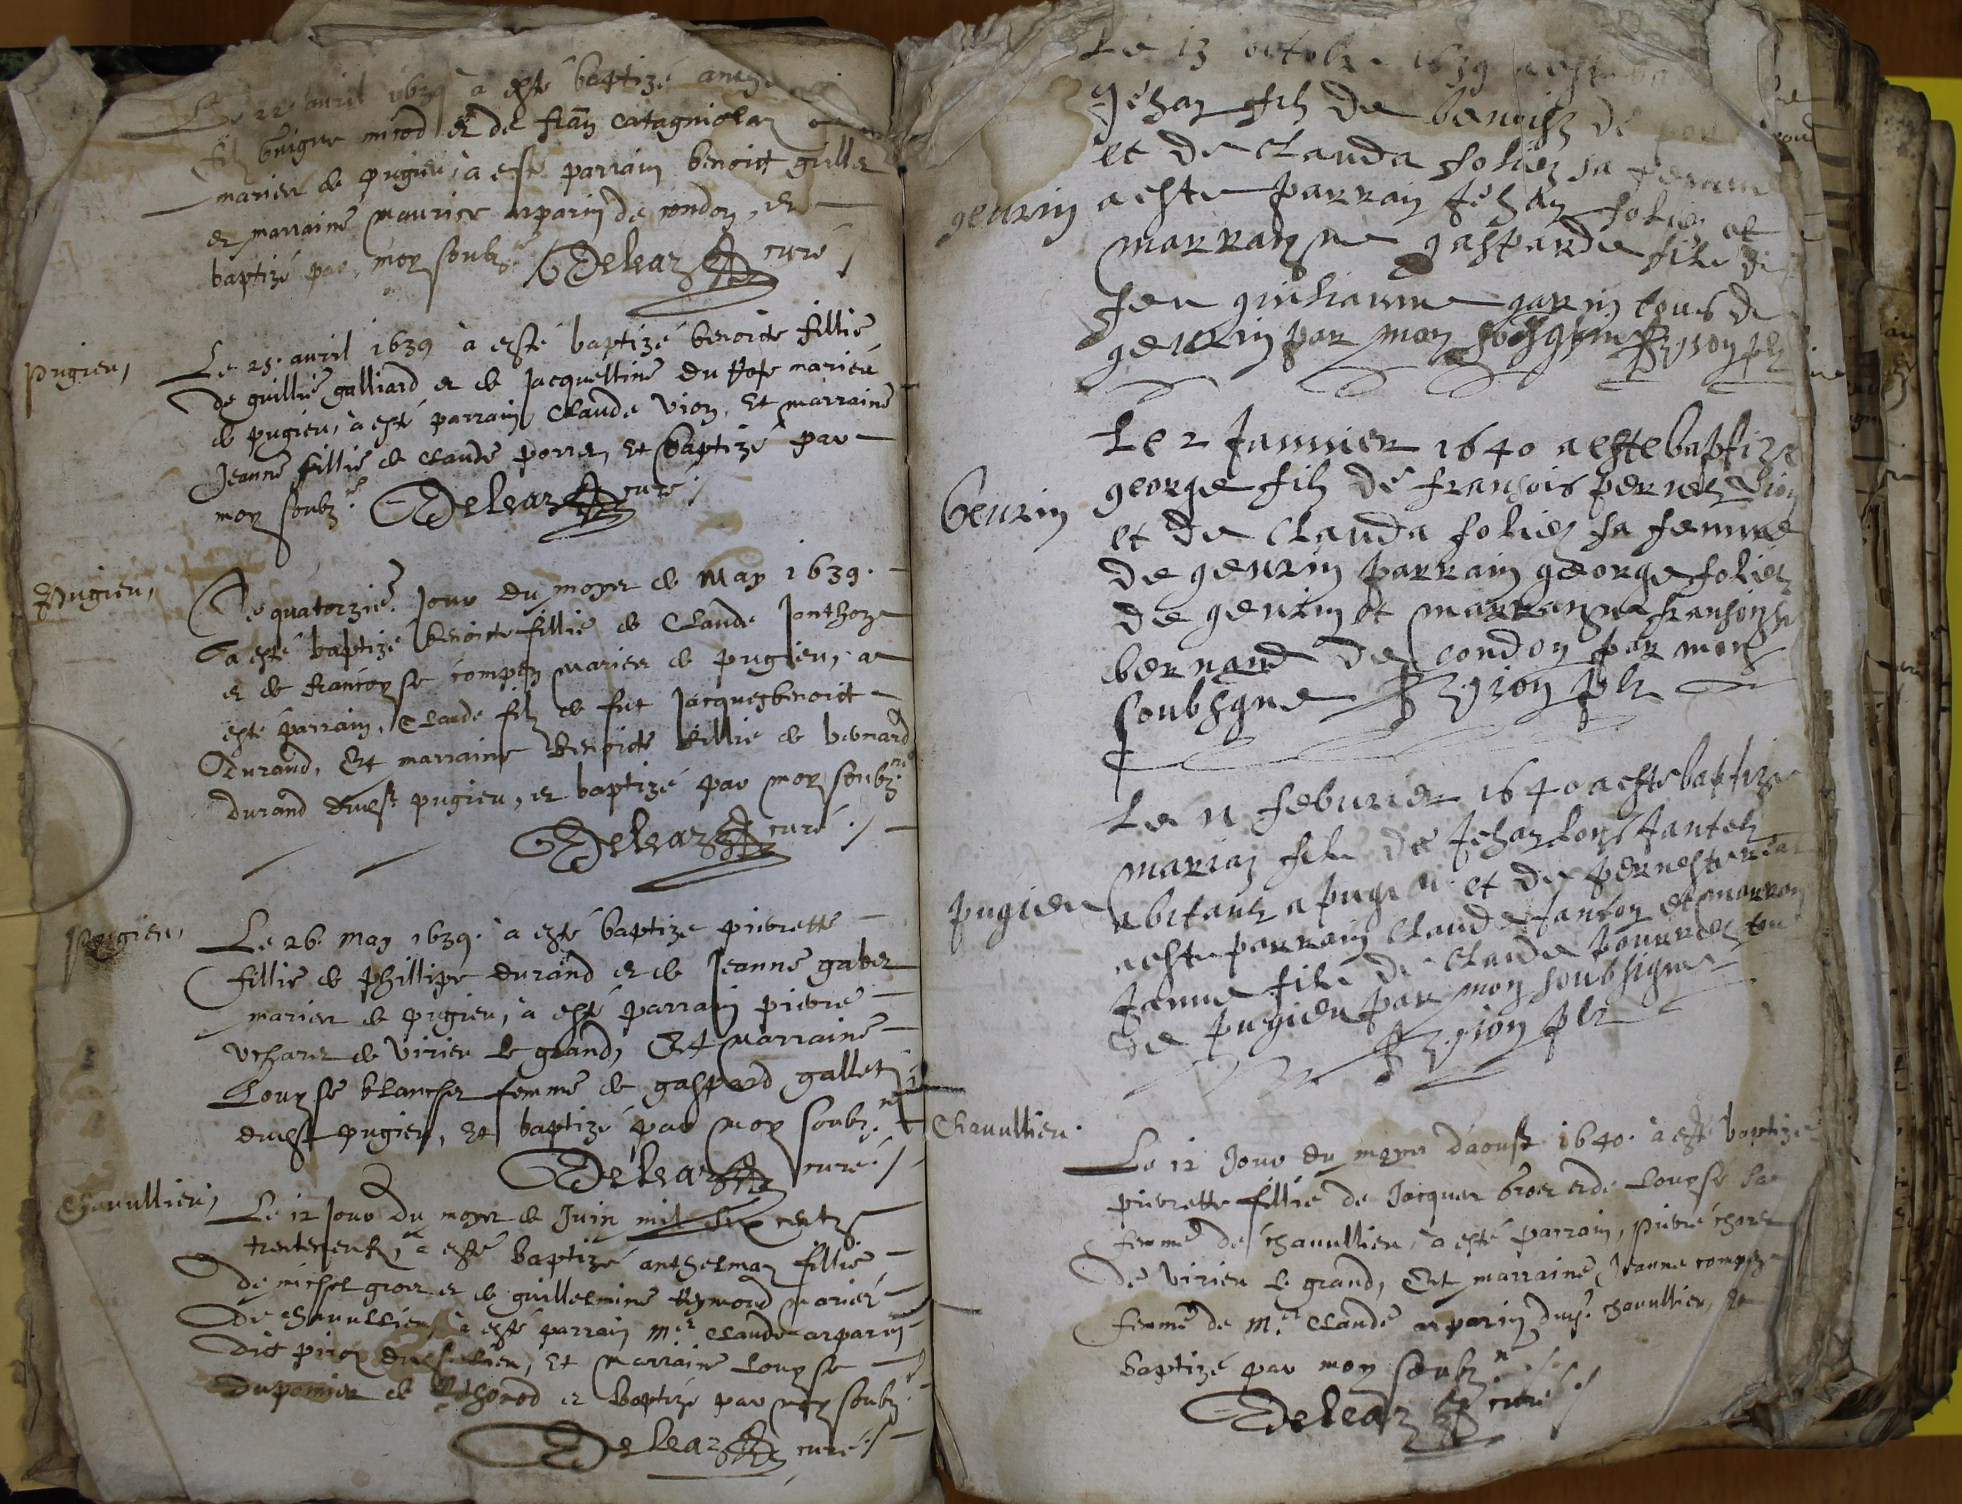 Le 22 avril 1639 à esté baptizé
filz benigne mirod et de fran catagniolaz
mariez de pugieu, à esté parrain benoict guller
et marraine maurice arparin de condon, et
baptizé par moy soubz
Deleaz curé
pugieu,
Le 25 avril 1639 à esté baptizé benoicte fillie
de guillie galliard et de Jacquettine du mariez
de pugieu, à esté parrain Claude vion, Et marraine
Jeanne fillie de Claude porret, et baptizé par
moy soubz
Deleaz curé
pugieu,
Le quatorzie Jour du moys de May 1639.
a esté baptizé benoicte fillie de Claude Jonthoz
et de francoyse compoz mariez de pugieu, a
esté parrain, Claude filz de fut Jacques benoict
Durand, Et marraine Benoicte fillie de bernard
durand dudt pugieu, et baptizé par moy soubz
Deleaz curé
pugieu,
Le 26 May 1639. à esté baptize pierrette
fillie de phillipe durand et de Jeanne gabet
mariez de pugieu, à esté parrain pierre
de virieu le grand, Et Marraine
Louyse blanchet femme de gaspard gallet
dudt pugieu, Et baptizé par Moy soubz
Deleaz curé
Chavullieu,
Le 12 Jour du moys de Juin mil six centz
trenteneufz, a esté baptizé anthelmaz fillie
de michel groz et de guillelmine Reymond mariez
De Chavullieu, à esté parrain Mre Claude arparin
Dict piroz dudt lieu, Et Marraine Louyse
dupomier de et Baptizé par moy soubz
Deleaz curé
Le 13 octobre 1639 a esté
Jehaz filz de benoist de
et de Clauda foliez sa femme
geurin
a este parrain Jehan foliez et
marranne gasparde file de
feu guiliaume garin tous de
geurin par moy soubsigné gion ptr
Le 2 Janvier 1640 a este baptize
geurin
george filz de fransois pernet
et de Clauda foliez sa femme
de geurin parrain george foliez
de geurin et marranne fransoise
bernard de condon par moy
soubsigne gion ptr
Le 11 feburier 1640 a este baptize
mariaz file de Jehan loys Jantet
pugieu
abitant a pugieu et de
a este parrain Claude Janton et marran
Janne file de Claude pourret tou
de pugieu par moy soubsigne
gion ptr
Chavullieu
Le 12 Jour du moys daoust 1640. à esté baptizé
pierrette fillie de Jacques groz et de Louyse sa
femme de chavullieu, à esté parrain, pierre
De virieu le grand, Et marraine Jeanne compoz
femme de Mre Claude arparin dudt chavullieu, Et
baptizé par moy soubz
Deleaz curé